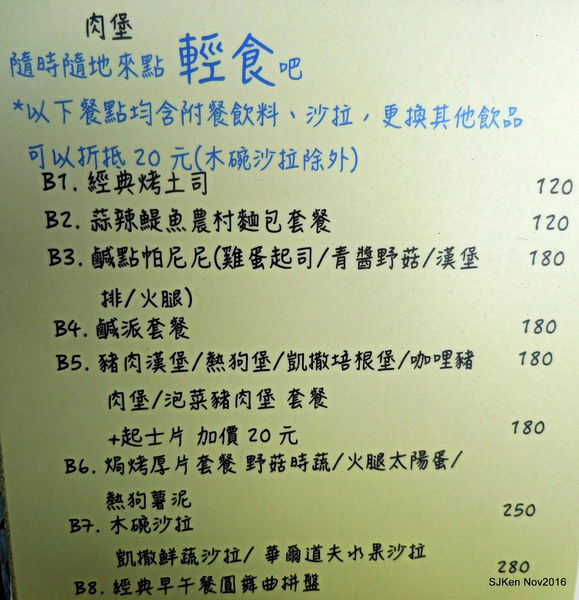 肉堡
隨時隨地來點 輕食吧
*以下餐點均含附餐飲料、沙拉，更換其他飲品
可以折抵 20 元(木碗沙拉除外)
B1. 經典烤土司 120
B2. 蒜辣鯷魚農村麵包套餐 120
B3. 鹹點帕尼尼(雞蛋起司/青醬野菇/漢堡 180
排/火腿)
B4. 鹹派套餐 180
B5. 豬肉漢堡/熱狗堡/凱撒培根堡/咖哩豬 180
肉堡/泡菜豬肉堡 套餐
+起士片 加價 20 元 180
B6. 焗烤厚片套餐 野菇時蔬/火腿太陽蛋/
熱狗薯泥 250
B7. 木碗沙拉
凱撒鮮蔬沙拉/ 華爾道夫水果沙拉 280
B8. 經典早午餐圓舞曲拼盤
SJKen Nov2016